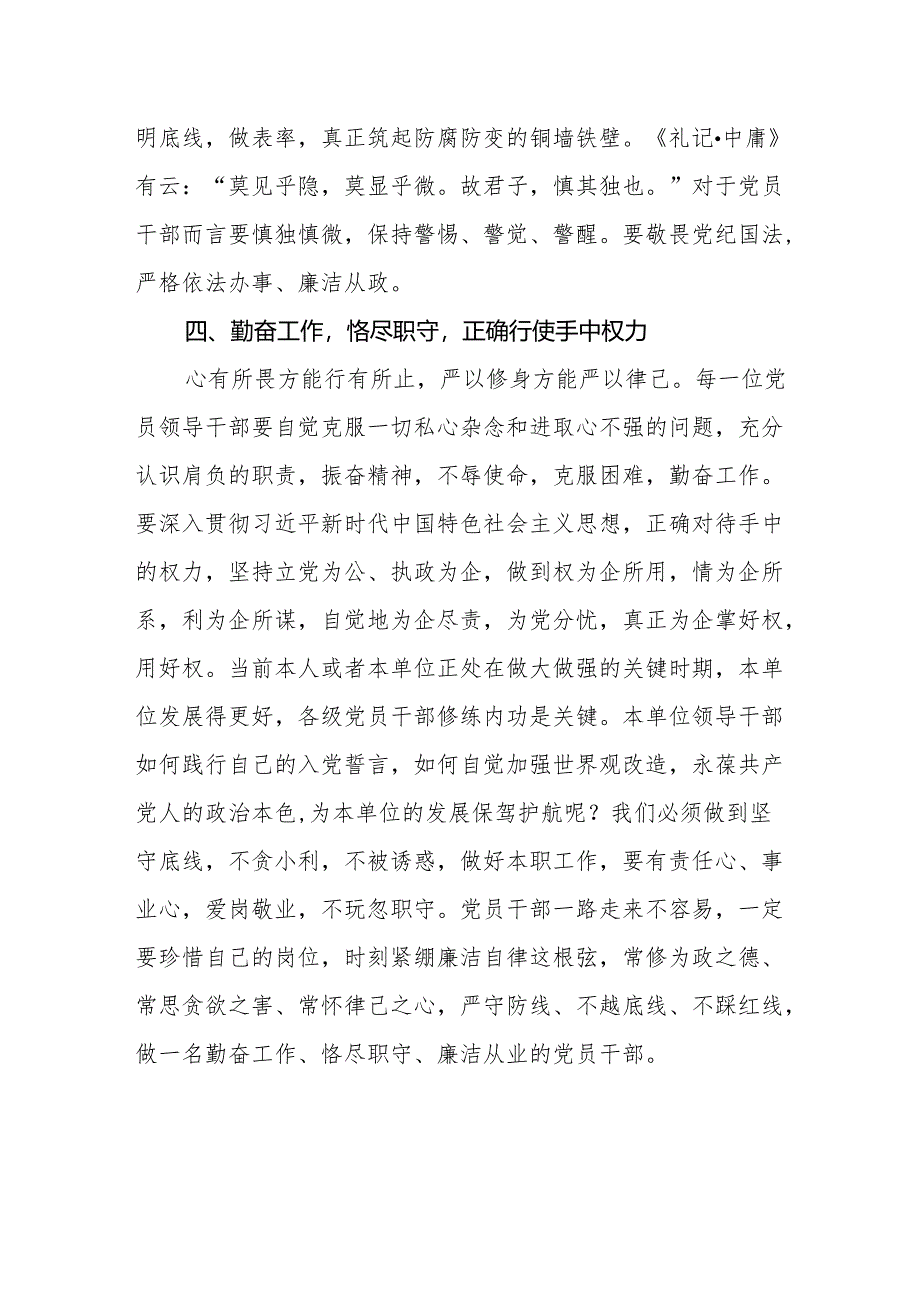 明底线，做表率，真正筑起防腐防变的铜墙铁壁。《礼记•中庸》
有云：“莫见乎隐，莫显乎微。故君子，慎其独也。”对于党员
干部而言要慎独慎微，保持警惕、警觉、警醒。要敬畏党纪国法，
严格依法办事、廉洁从政。
四、勤奋工作，恪尽职守，正确行使手中权力
心有所畏方能行有所止，严以修身方能严以律己。每一位党
员领导干部要自觉克服一切私心杂念和进取心不强的问题，充分
认识肩负的职责，振奋精神，不辱使命，克服困难，勤奋工作。
要深入贯彻习近平新时代中国特色社会主义思想，正确对待手中
的权力，坚持立党为公、执政为企，做到权为企所用，情为企所
系，利为企所谋，自觉地为企尽责，为党分忧，真正为企掌好权，
用好权。当前本人或者本单位正处在做大做强的关键时期，本单
位发展得更好，各级党员干部修练内功是关键。本单位领导干部
如何践行自己的入党誓言，如何自觉加强世界观改造，永葆共产
党人的政治本色,为本单位的发展保驾护航呢？我们必须做到坚
守底线，不贪小利，不被诱惑，做好本职工作，要有责任心、事
业心，爱岗敬业，不玩忽职守。党员干部一路走来不容易，一定
要珍惜自己的岗位，时刻紧绷廉洁自律这根弦，常修为政之德、
常思贪欲之害、常怀律己之心，严守防线、不越底线、不踩红线，
做一名勤奋工作、恪尽职守、廉洁从业的党员干部。